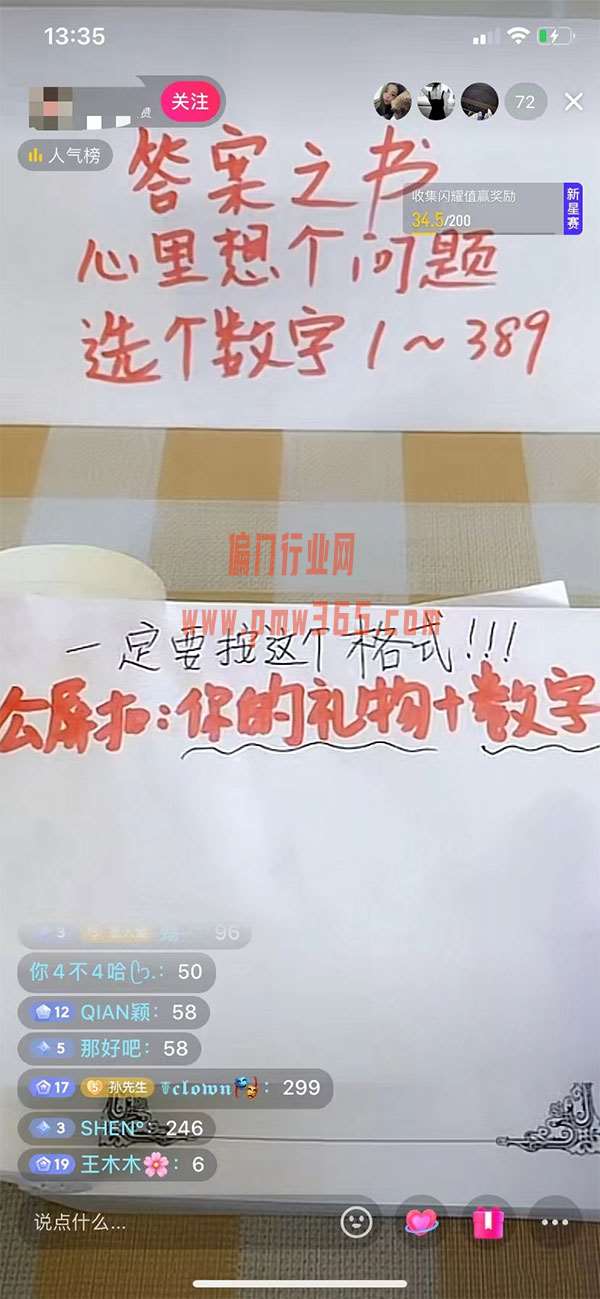 13:35
费
关注
72
人气榜
答案之书
收集闪耀值赢奖励
34.5/200
新星赛
心里想个问题
选个数字1～389
偏门行业网
www.pmw365.com
一定要按这个格式!!!
公屏扣:你的礼物+数字
3 96
你4不4哈: 50
12 QIAN颖: 58
5 那好吧: 58
17 5 孙先生 𝕿𝖈𝖑𝖔𝖜𝖓🎭: 299
3 SHEN°: 246
19 王木木🌸: 6
说点什么...